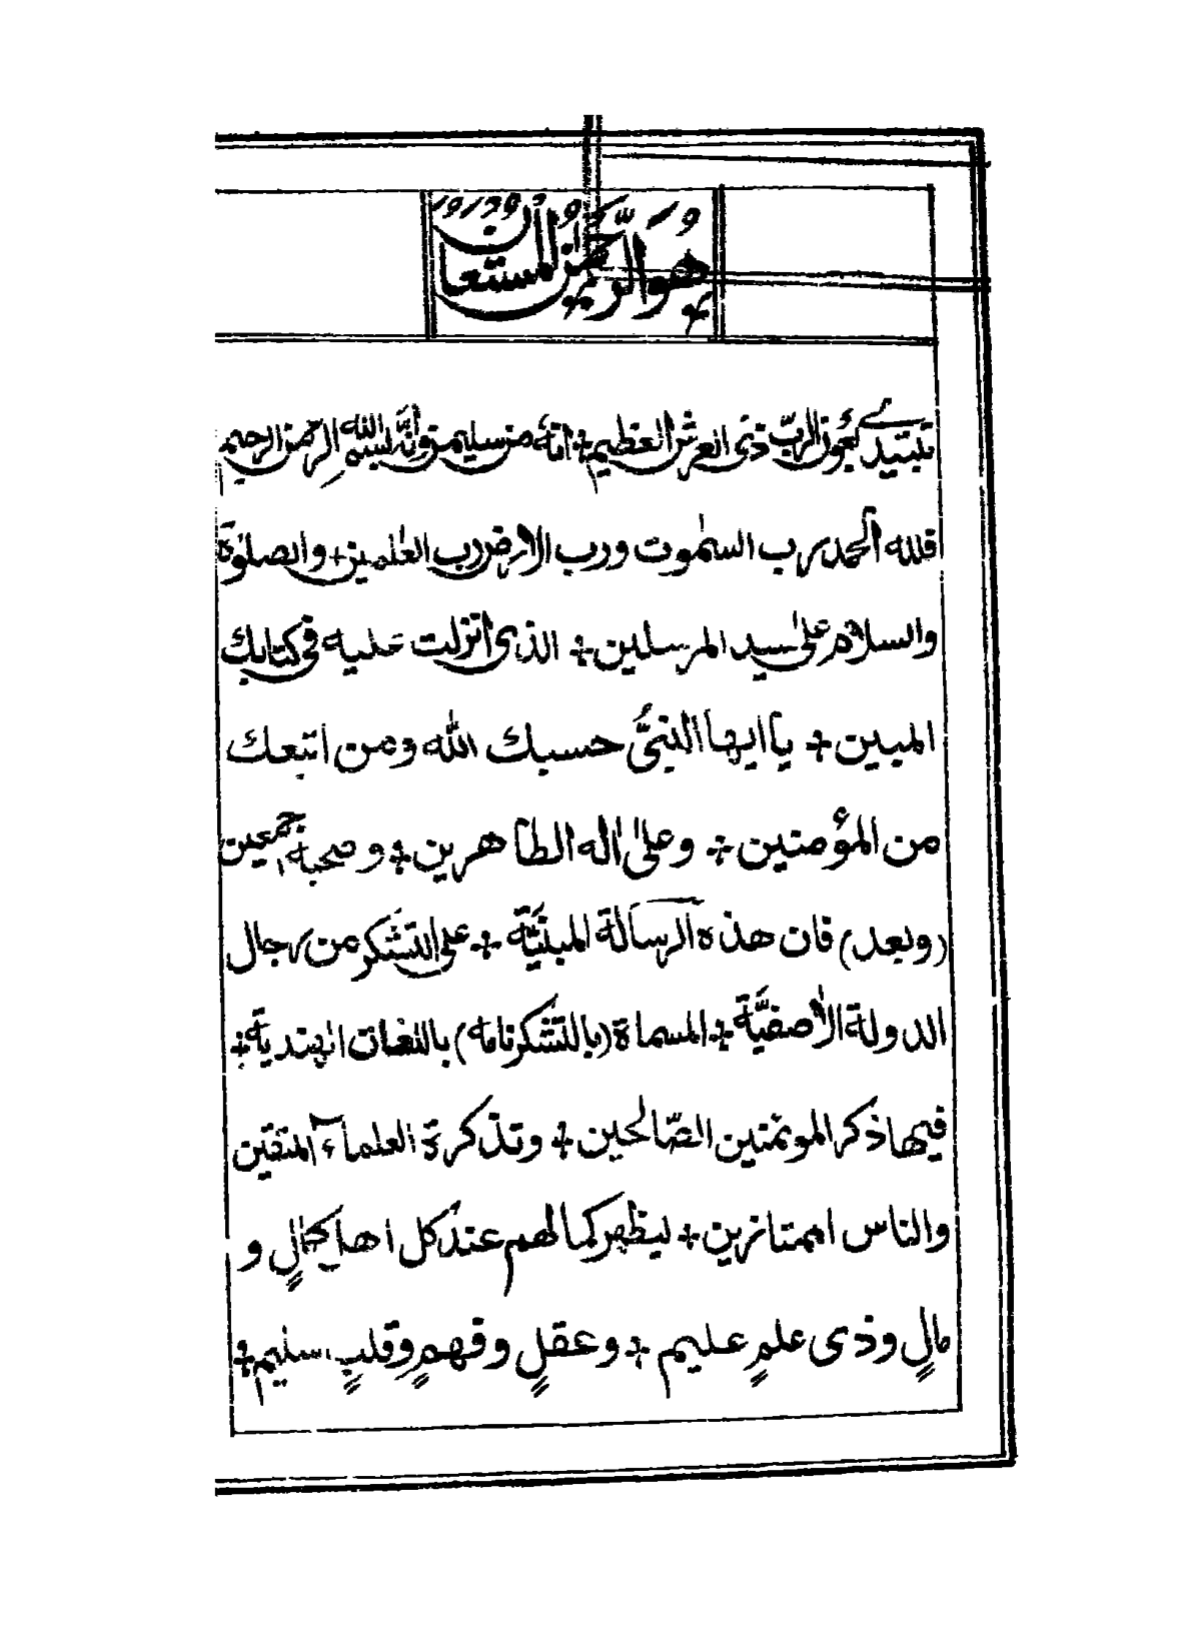 هُوَ الرَّحْمٰنُ الْمُسْتَعَانُ
نبتدئ بعون الربّ ذی العرش العظیم ÷ انهٗ من سلیمٰن وانَّه بسم الله الرحمٰن الرحیم
فلله الحمد رب السمٰوت ورب الارض رب العٰلمین ÷ والصلوٰة
والسلام علیٰ سید المرسلین ÷ الذی انزلت علیه فی کتابك
المبین ÷ یا ایها النبیُّ حسبك الله ومن اتبعك
من المؤمنین ÷ وعلیٰ اٰله الطاهرین ÷ وصحبه اجمعین
(وبعد) فان هذه الرسالة المبنیَّة ÷ علی التشکر من رجال
الدولة الاٰصفیَّة ÷ المسماة (بالتشکر نامه) باللغات الهندیة ÷
فیها ذکر الموئمنین الصّالحین ÷ وتذکرة العلماء المتقین
والناس الممتازین ÷ لیظهر کمالهم عند کل اهل کمالٍ و
مالٍ وذی علمٍ علیم ÷ وعقلٍ وفهمٍ وقلبٍ سلیم ÷